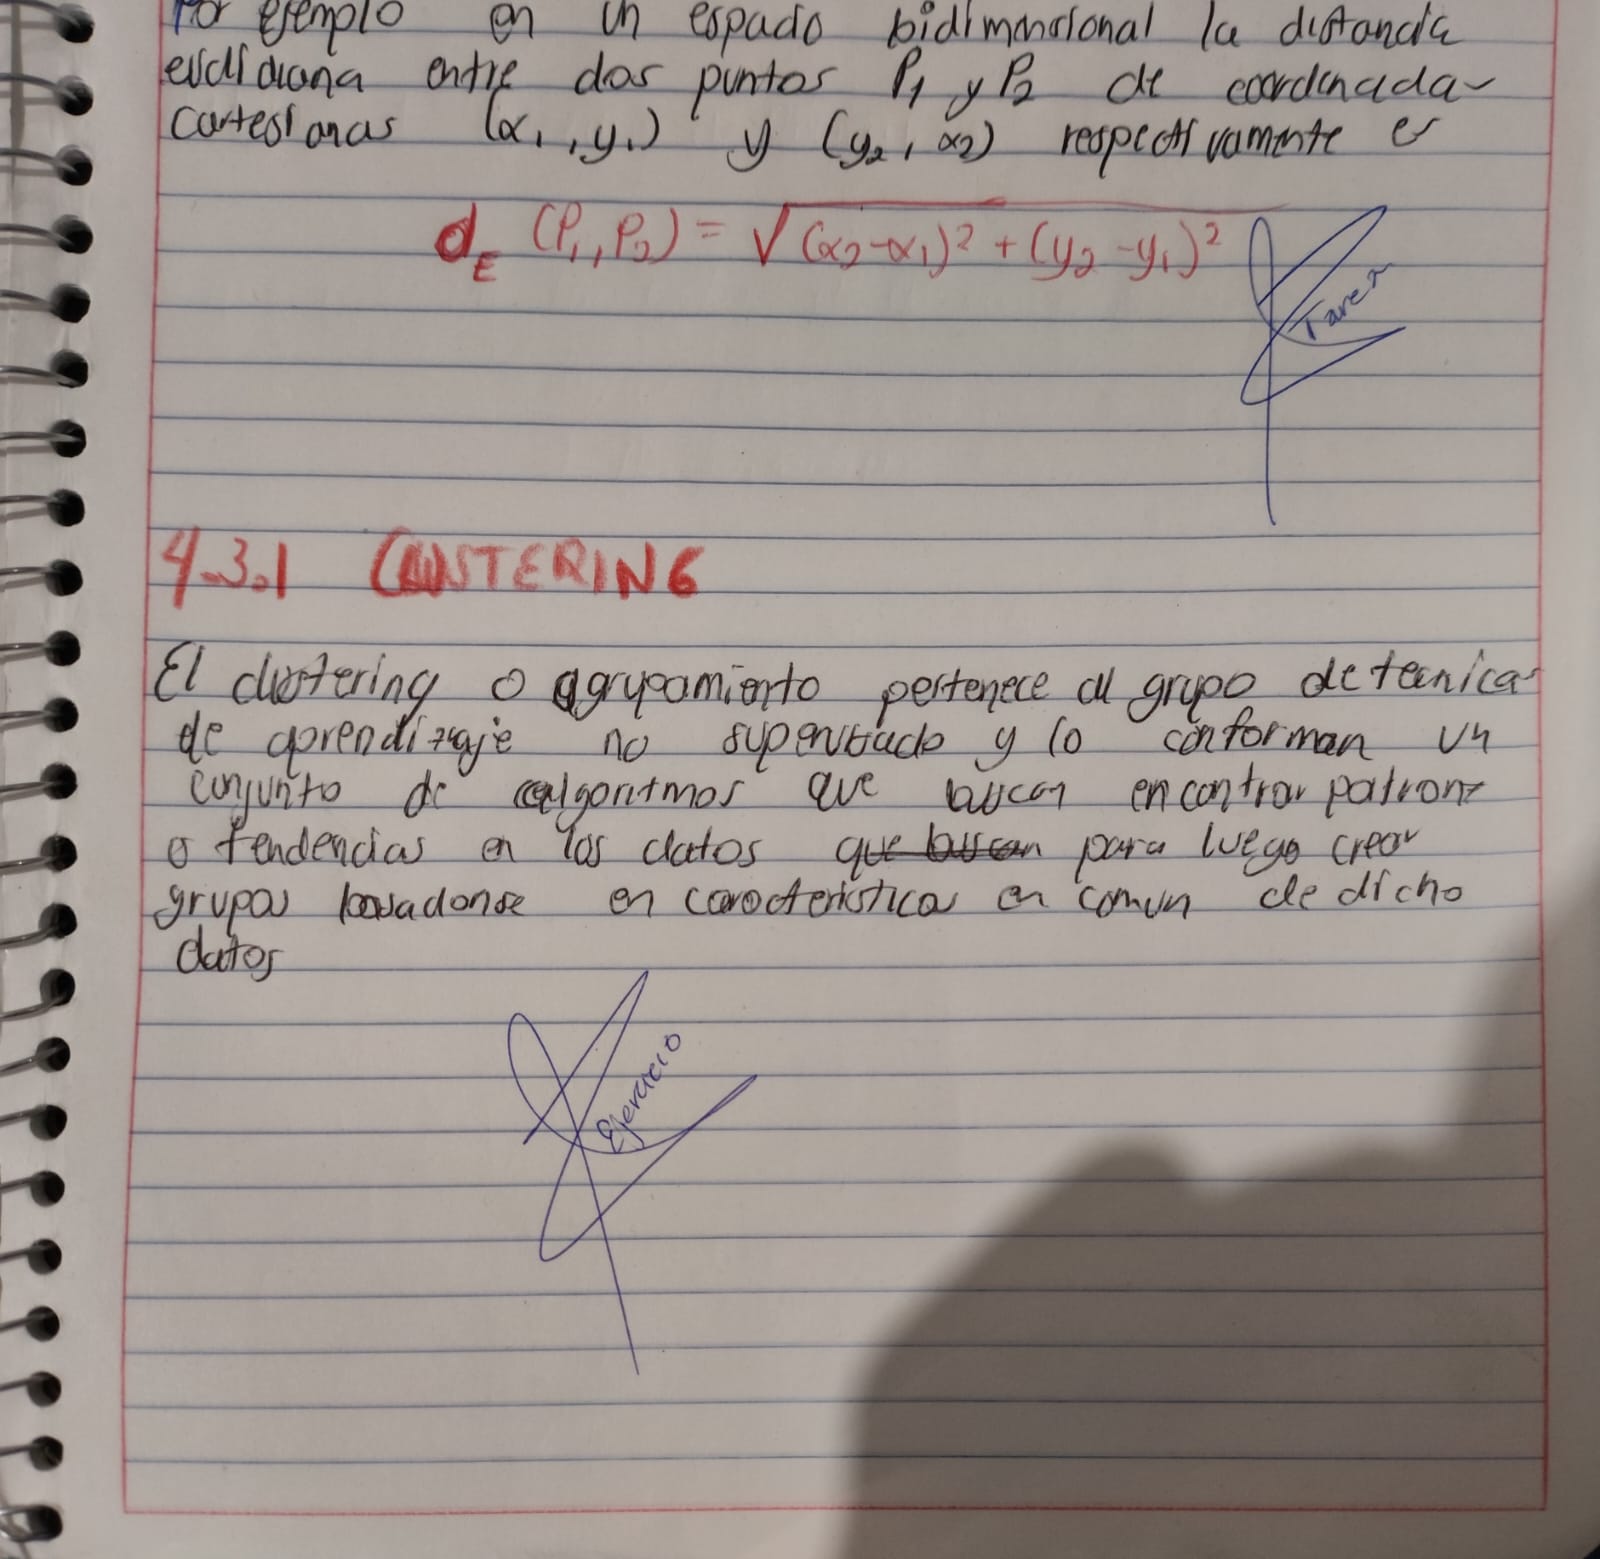 Por ejemplo en un espacio bidimensional la distancia
euclidiana entre dos puntos P1 y P2 de coordenadas
cartesianas (x1, y1) y (y2, x2) respectivamente es
dE (P1, P2) = √(x2-x1)² + (y2-y1)²
Tarea
4.3.1 CLUSTERING
El clustering o agrupamiento pertenece al grupo de tecnicas
de aprendizaje no supervisado y lo conforman un
conjunto de algoritmos que buscan encontrar patrones
o tendencias en los datos que buscan para luego crear
grupos basadonse en caracteristicas en comun de dicho
datos
Ejercicio